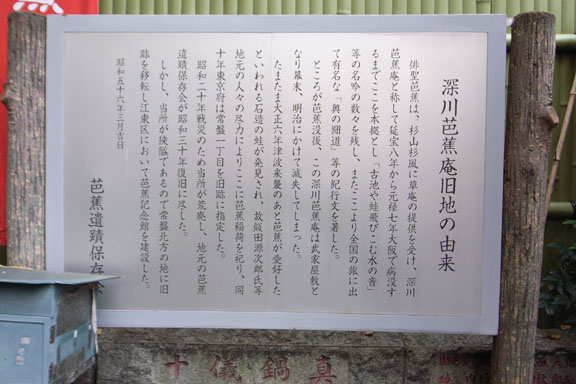 深川芭蕉庵旧地の由来
俳聖芭蕉は、杉山杉風に草庵の提供を受け、深川
芭蕉庵と称して延宝八年から元禄七年大阪で病没す
るまでここを本拠とし「古池や蛙飛びこむ水の音」
等の名吟の数々を残し、またここより全国の旅に出
て有名な「奥の細道」等の紀行文を著した。
ところが芭蕉没後、この深川芭蕉庵は武家屋敷と
なり幕末、明治にかけて滅失してしまった。
たまたま大正六年津波来襲のあと芭蕉が愛好した
といわれる石造の蛙が発見され、故飯田源次郎氏等
地元の人々の尽力によりここに芭蕉稲荷を祀り、同
十年東京府は常盤一丁目を旧跡に指定した。
昭和二十年戦災のため当所が荒廃し、地元の芭蕉
遺蹟保存会が昭和三十年復旧に尽した。
しかし、当所が狭隘であるので常盤北方の地に旧
跡を移転し江東区において芭蕉記念館を建設した。
昭和五十六年三月吉日
芭蕉遺蹟保存会
十儀鍋真